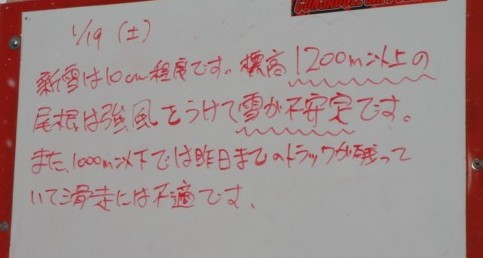 1/19 (土)
新雪は10cm程度です。標高1200m以上の
尾根は強風をうけて雪が不安定です。
また、1000m以下では昨日までのトラックが残って
いて滑走には不適です。